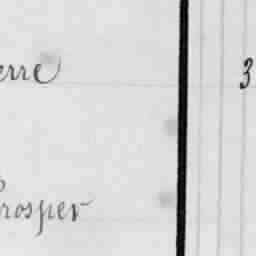 erre 3
rosper